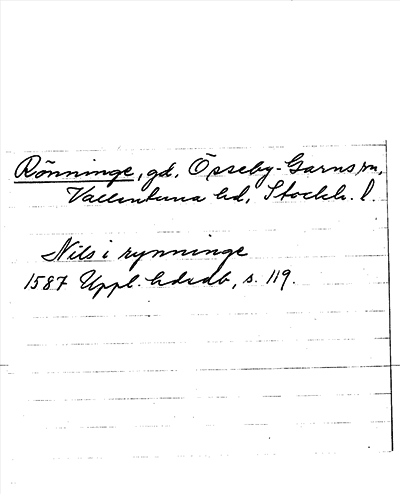 Rönninge, gd, Össeby-Garns sn,
Vallentuna hd, Stockh. l.
Nils i rynninge
1587 Uppl. hdrdb, s. 119.